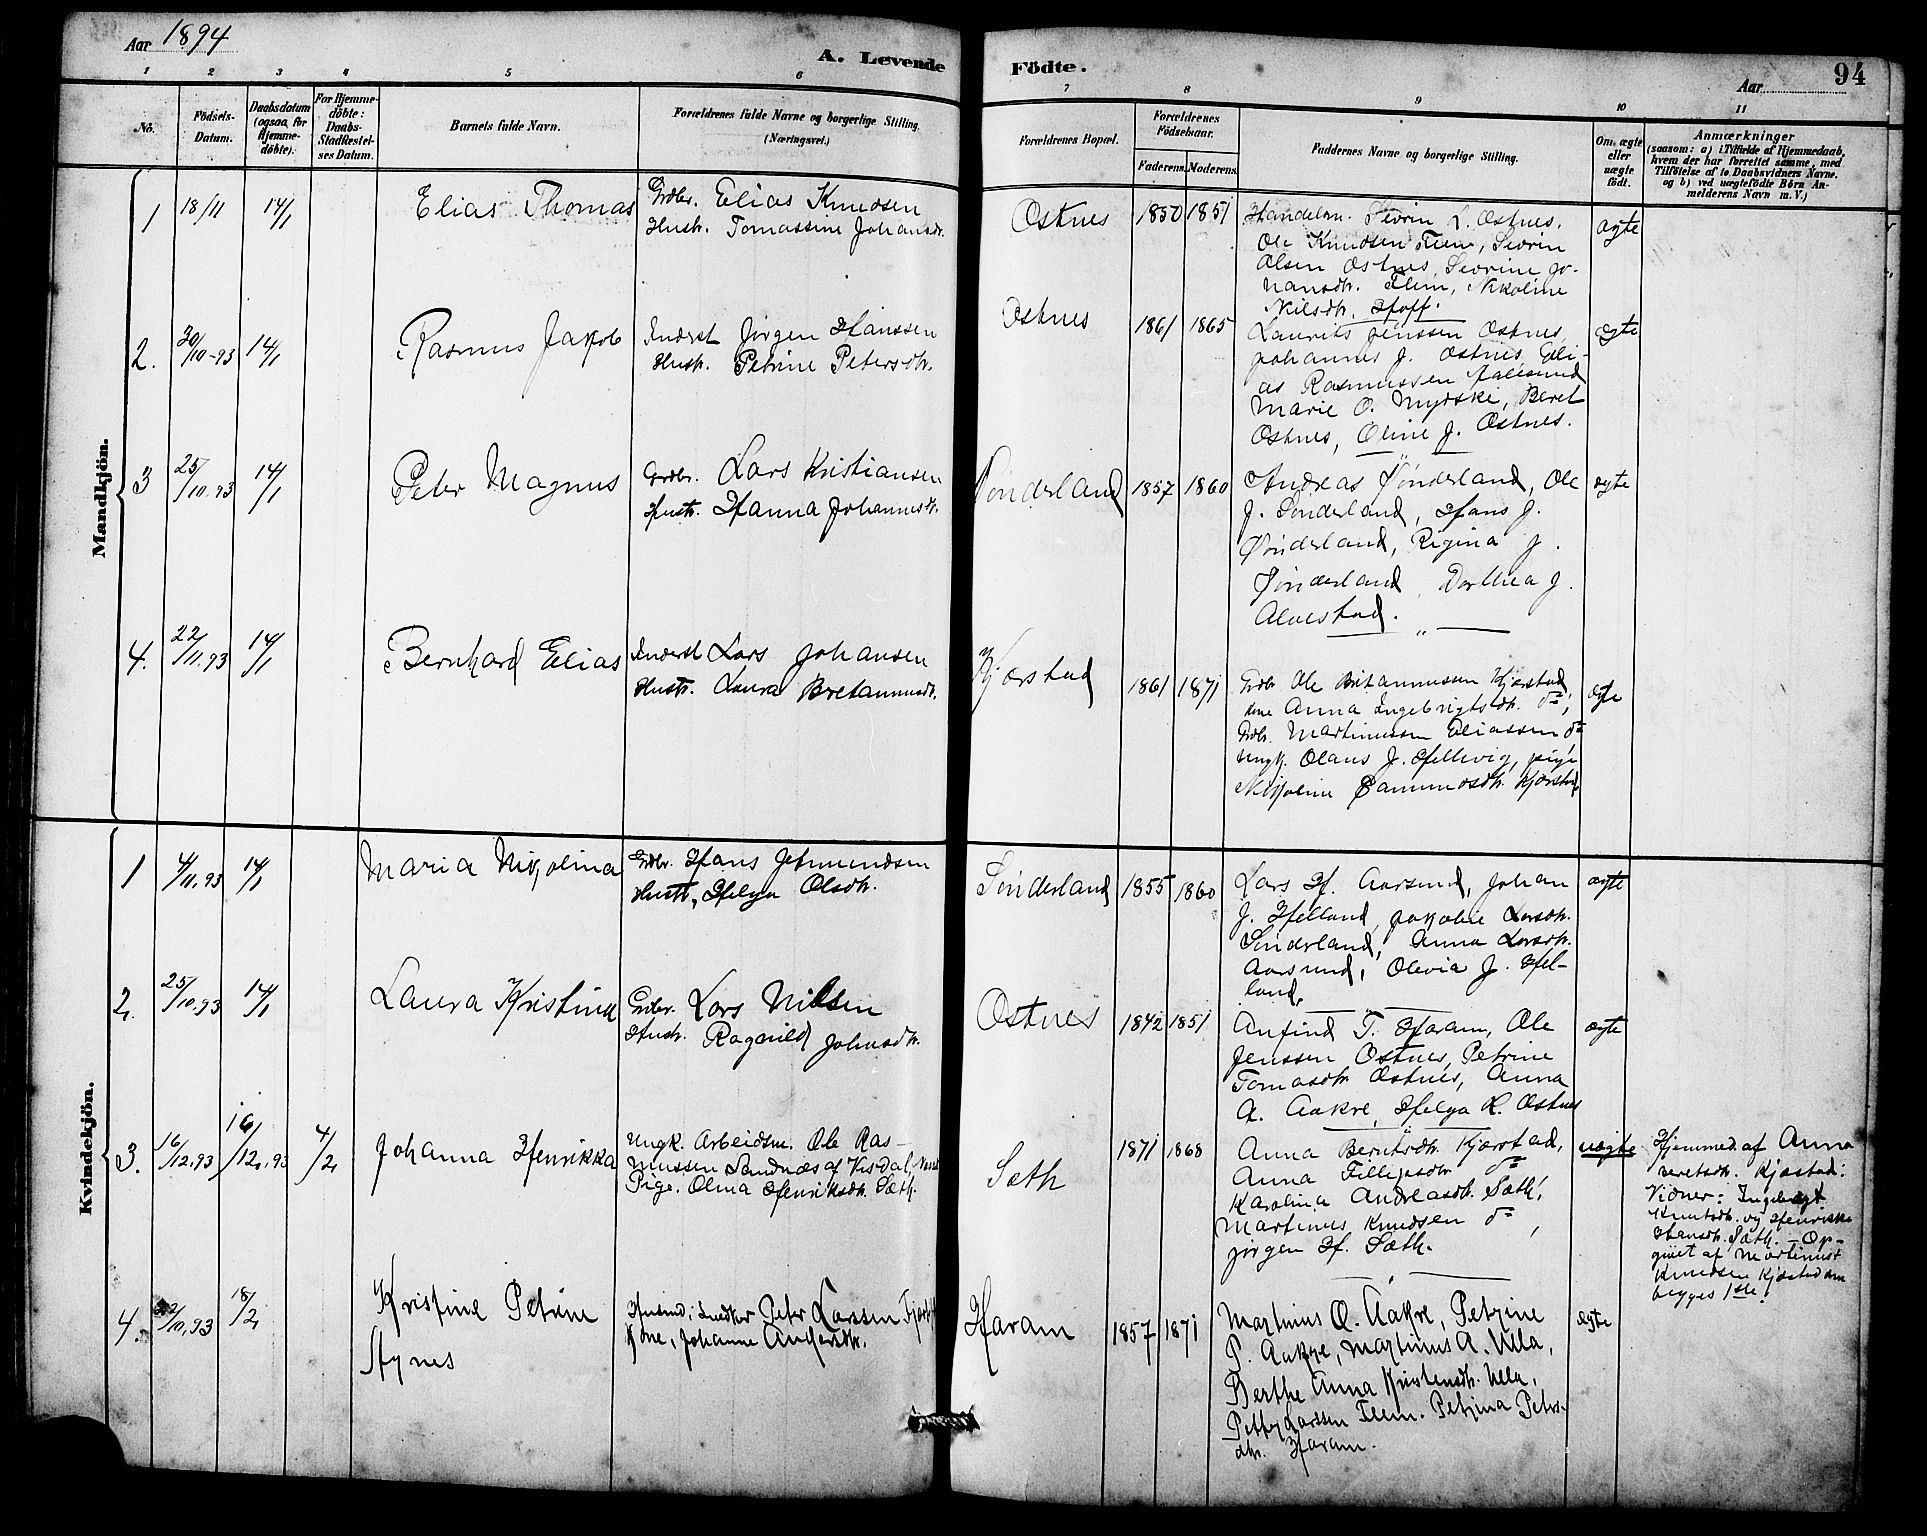 Aar 1894
A. Levende
Födte.
Aar
94
1 2 3 4 5 6
7 8 9 10 11
No.
Födsels-
Datum.
Daabsdatum
(ogsaa for
Hjemme-
döbte).
For Hjemme-
döbte:
Daabs-
Stadfæstel-
ses Datum.
Barnets fulde Navn.
Forældrenes fulde Navne og borgerlige Stilling.
(Næringsvei.)
Forældrenes Bopæl.
Forældrenes
Födselsaar.
Faderens. Moderens.
Faddernes Navne og borgerlige Stilling.
Om ægte
eller
uægte
födt.
Anmærkninger
(saasom: a) i Tilfælde af Hjemmedaab,
hvem der har forrettet samme, med
Tilföielse af to Daabsvidners Navne,
og b) ved uægtefödte Börn An-
melderens Navn m. V.)
Mandkjön.
1 18/11 14/1 Elias Thomas
Grdbr. Elias Knudsen
Hustr. Tomassine Johansdr.
Ostnes 1850 1851
Handelsm. Sevrin L. Ostnes,
Ole Knudsen Flem, Sevrin
Olsen Ostnes, Sevrine Jo-
hansdtr. Flem, Nikoline
Nilsdtr. Hoff.
ægte
2. 30/10-93 14/1 Rasmus Jakob
Inderst Jørgen Hanssen
Hustr. Petrine Petersdtr.
Ostnes 1861 1865
Laurits Jenssen Ostnes,
Johannes J. Ostnes, Eli-
as Rasmussen Aalesund
Marie O. Myrske, Beret
Ostnes, Oline J. Ostnes.
ægte
3 25/10.93 14/1 Peter Magnus
Grdbr. Lars Kristiansen
Hustr. Hanna Johannesdtr.
Sønderland 1857 1860
Andreas Sønderland, Ole
J. Sønderland, Hans J.
Sønderland, Rigina J.
Sønderland, Dorthea J.
Alvestad.
ægte
4. 22/11.93 14/1 Bernhard Elias
Inderst Lars Johansen
Hustr. Laura Bretanmusdtr.
Kjærstad 1861 1871
Grdbr Ole Britanmussen Kjærstad,
kone Anna Ingebrigtsdtr. do,
Grdbr. Martinussen Eliassen, do
Ungk. Olaus J. Hellevig, pige
Nikoline Rasmusdtr. Kjærstad,
ægte
Kvindekjön.
1 4/11.93 14/1 Maria Nikolina
Grdbr. Hans Jetmundsen
Hustr. Helga Olsdtr.
Sønderland 1855 1860
Lars H. Aarsund, Johan
J. Helland, Jakobie Larsdtr.
Sønderland, Anna Larsdtr.
Aarsund, Olevia J. Hel-
land,
ægte
2. 25/10.93 14/1 Laura Kristina
Grdbr. Lars Nilsen
Hustr. Ragnild Johnsdtr.
Ostnes 1842 1851
Anfind T. Haram, Ole
Jenssen Ostnes, Petrine
Tomasdtr Ostnes, Anna
A. Aakre, Helga K. Ostnes
ægte
3. 16/12.93 16/12.93 4/2 Johanna Henrikka
Ungk. Arbeidsm. Ole Ras-
mussen Sandnæs af Visdal,
Pige. Olina Henriksdtr. Sæth.
Sæth 1871 1868
Anna Berntsdtr. Kjærstad,
Anna Fillipsdtr do
Karolina Andreasdtr. Sæth,
Martinus Knudsen do,
Jørgen H. Sæth.
uægte
Hjemmed. af Anna
Kjæstad:
Vidner: Ingeborg
Knutsdtr. og Henrikke
Hansdtr. Sæth. - Op-
givet af Martinus
Knudsen Kjæstad
begges 1ste!
4. 22/10.93 18/2 Kristine Petrine
Agnes
Husmd. i Peter Larssen
Kone, Johanne Andersdtr.
Haram 1857 1871
Martinus O. Aakre, Petrine
P. Aakre, Martinus A. Ulla,
Berthe Anna Kristensdtr. Ulla,
Petter Larssen Flem. Petrina Peters-
dtr. Haram.
ægte